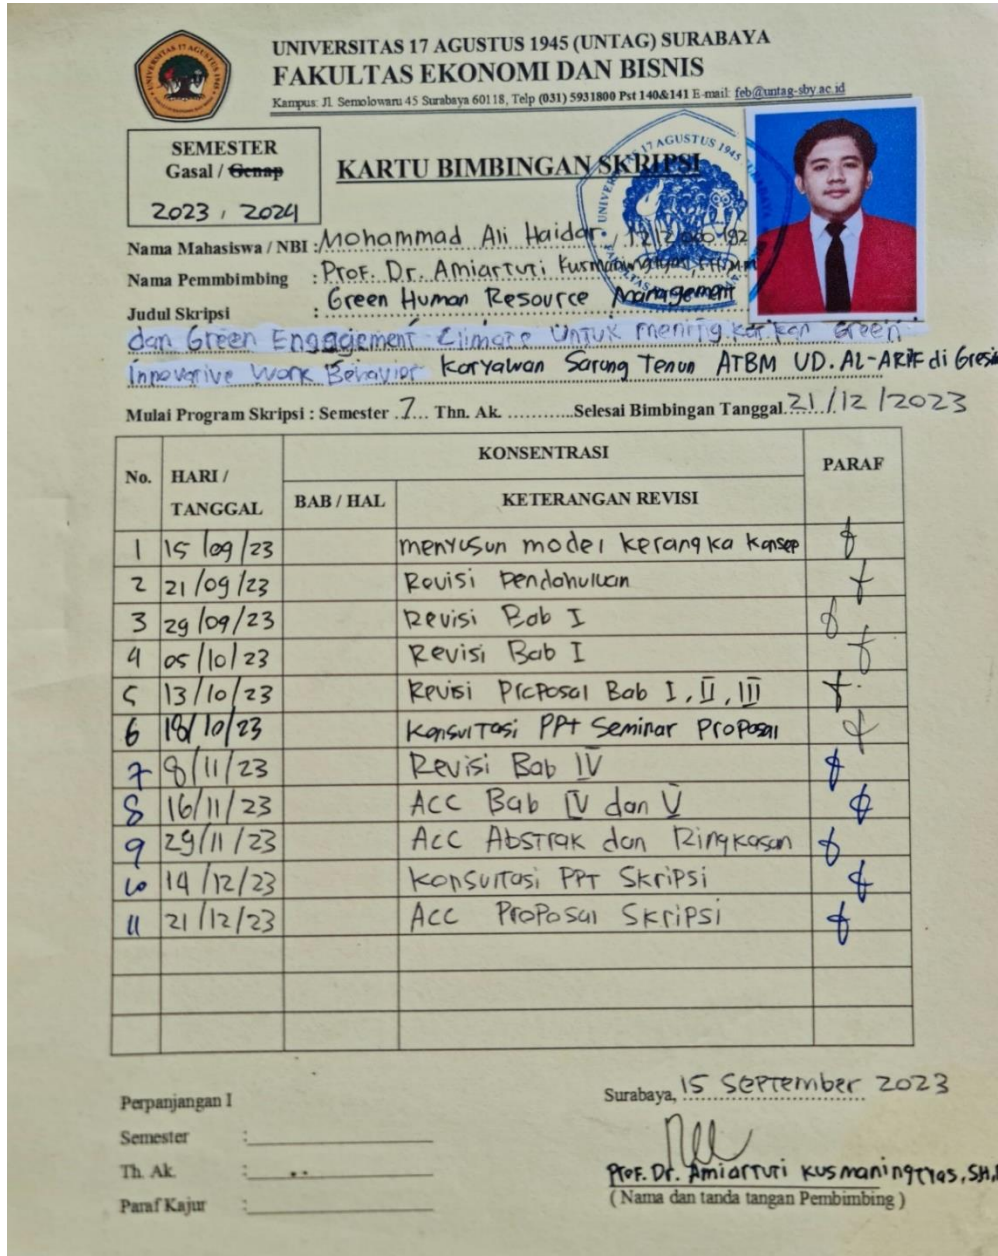 UNIVERSITAS 17 AGUSTUS 1945 (UNTAG) SURABAYA
FAKULTAS EKONOMI DAN BISNIS
Kampus: Jl. Semolowaru 45 Surabaya 60118, Telp (031) 5931800 Pst 140&141 E-mail: feb@untag-sby.ac.id
SEMESTER
Gasal / Genap
2023, 2024
KARTU BIMBINGAN SKRIPSI
Nama Mahasiswa / NBI : Mohammad Ali Haidar
Nama Pemmbimbing : Prof. Dr. Amiartuti Kusmaningtyas,
Judul Skripsi : Green Human Resource Management
dan Green Engagement Climate Untuk meningkatkan Green
Innovative Work Behavior Karyawan Sarung Tenun ATBM UD. AL-ARIF di Gresik
Mulai Program Skripsi : Semester 7 Thn. Ak. ............Selesai Bimbingan Tanggal 21/12/2023
No. HARI / TANGGAL KONSENTRASI PARAF
BAB / HAL KETERANGAN REVISI
1 15/09/23 menyusun model kerangka konsep
2 21/09/23 Revisi Pendahuluan
3 29/09/23 Revisi Bab I
4 05/10/23 Revisi Bab I
5 13/10/23 Revisi Proposal Bab I, II, III
6 18/10/23 Konsultasi PPt Seminar Proposal
7 8/11/23 Revisi Bab IV
8 16/11/23 ACC Bab IV dan V
9 29/11/23 Acc Abstrak dan Ringkasan
10 14/12/23 Konsultasi PPT Skripsi
11 21/12/23 Acc Proposal Skripsi
Perpanjangan I
Semester :
Th. Ak. :
Paraf Kajur :
Surabaya, 15 September 2023
Prof. Dr. Amiartuti Kusmaningtyas, SH,
( Nama dan tanda tangan Pembimbing )